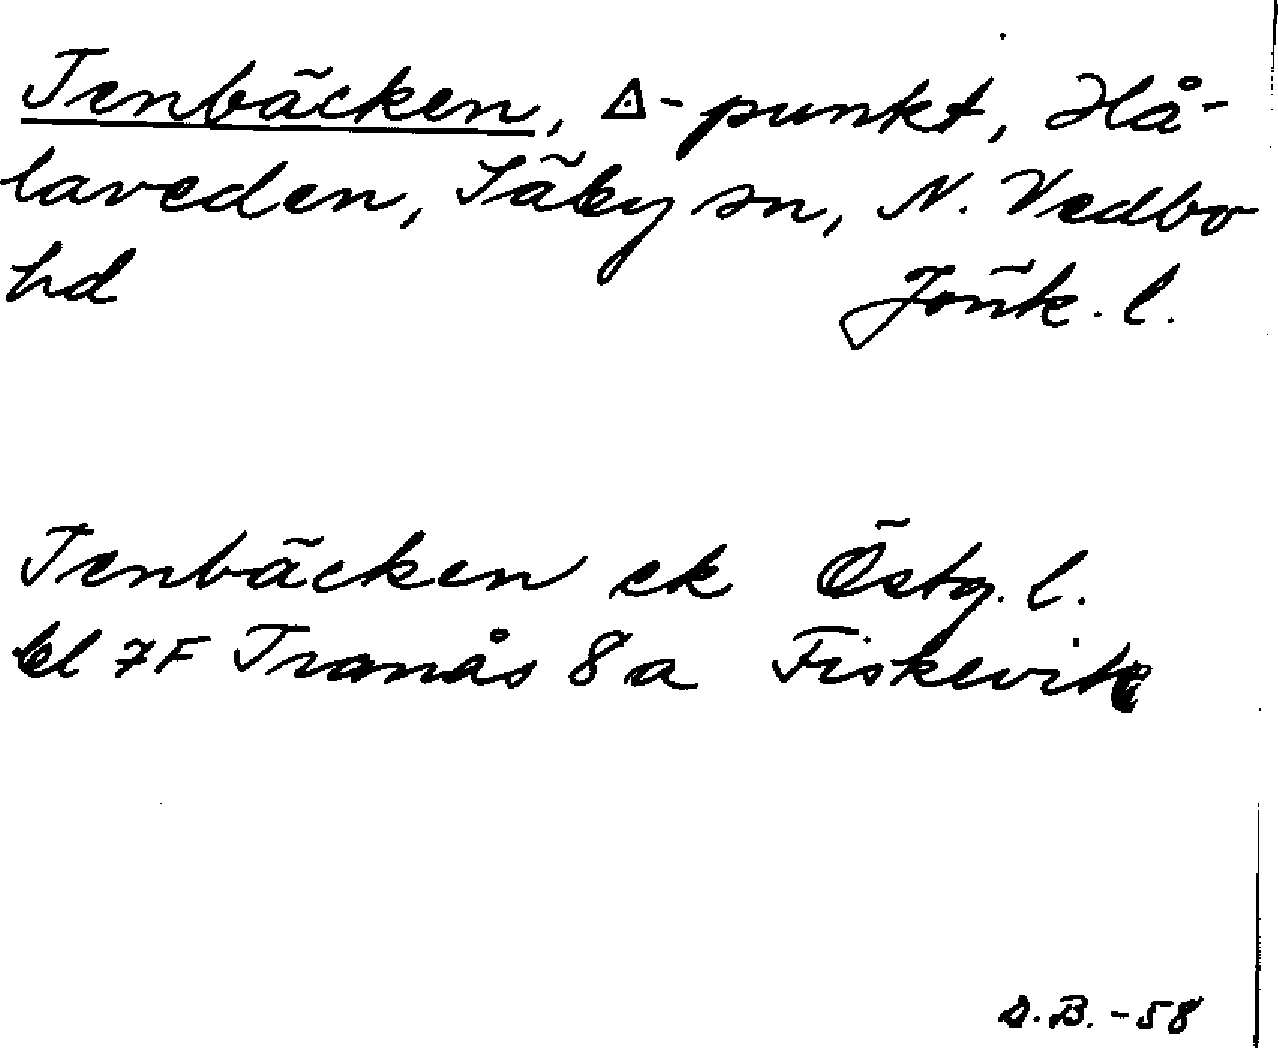 Tenbäcken, △-punkt, Hå-
laveden, Säby sn, N. Vedbo
hd Jönk. l.
Tenbäcken ek Östg. l.
bl 7F Tranås 8a Fiskevik
D.B. -58